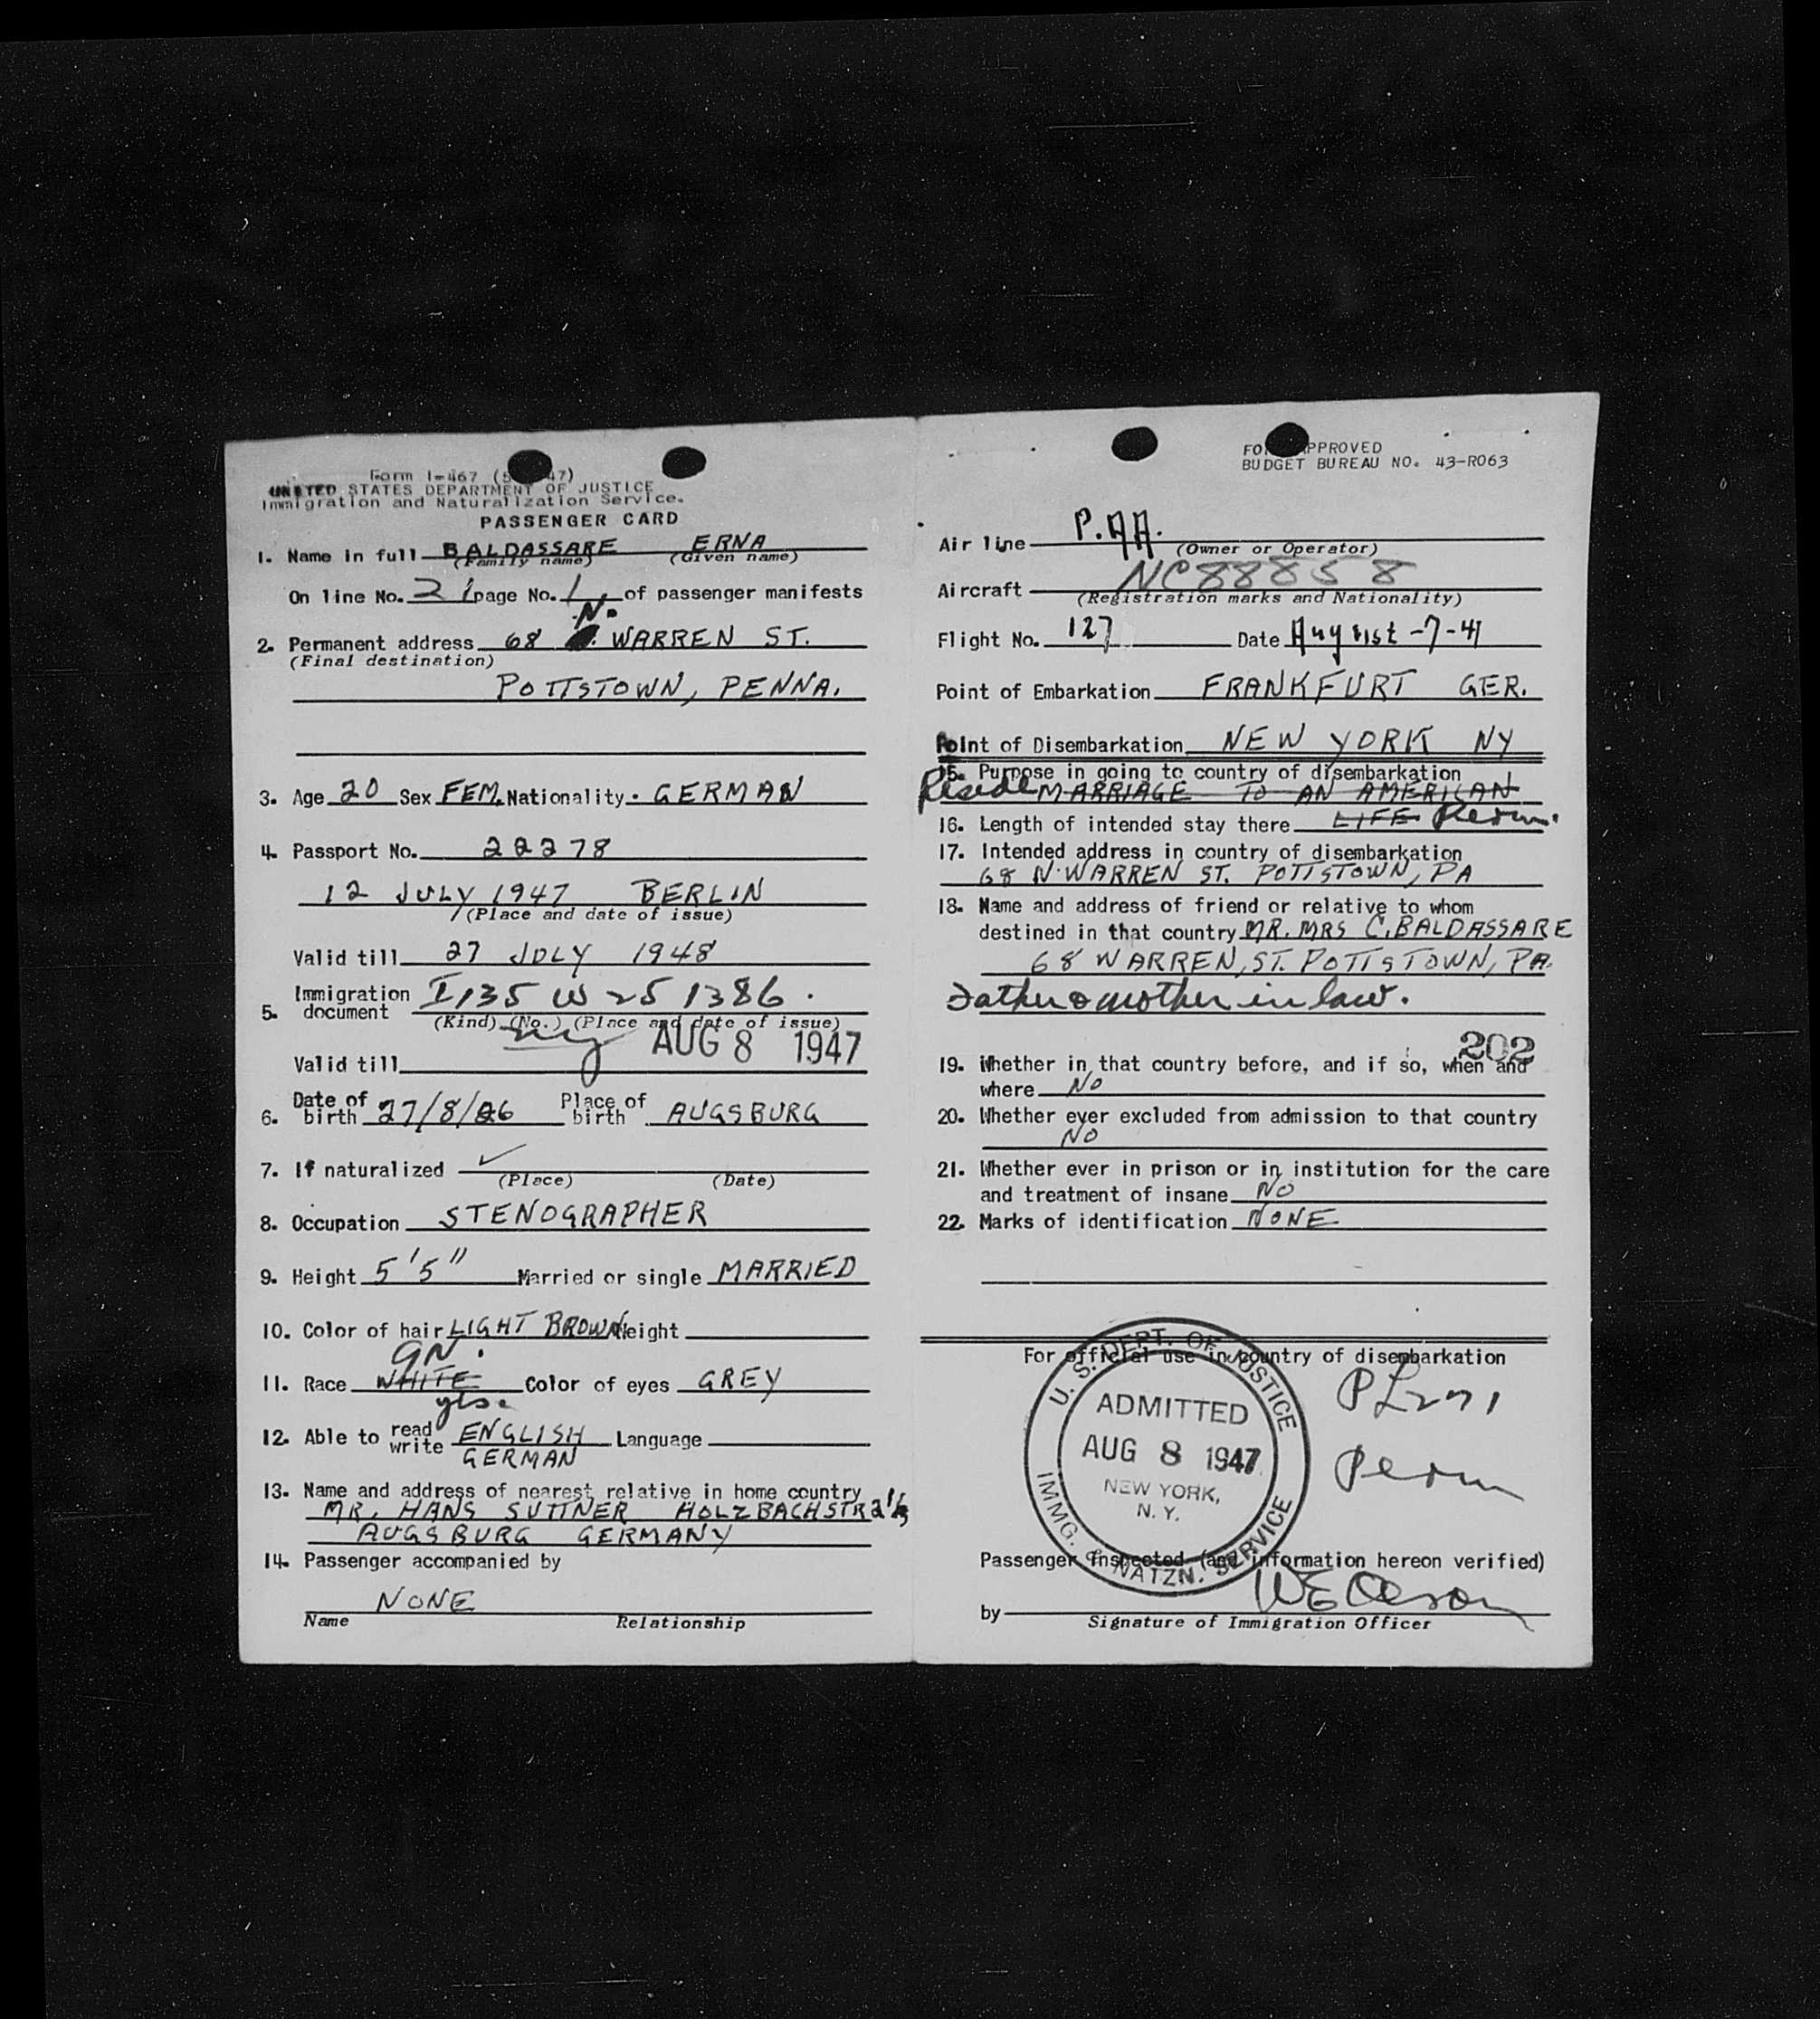 Form I-467 (5 47)
UNITED STATES DEPARTMENT OF JUSTICE
Immigration and Naturalization Service.
PASSENGER CARD
1. Name in full BALDASSARE ERNA
(Family name) (Given name)
On line No. 21 page No. 1 of passenger manifests
N.
2. Permanent address 68 WARREN ST.
(Final destination)
POTTSTOWN, PENNA.
3. Age 20 Sex FEM. Nationality. GERMAN
4. Passport No. 22278
12 JULY 1947 BERLIN
(Place and date of issue)
Valid till 27 JULY 1948
5. Immigration document I135 W 251386.
(Kind) (No.) (Place and date of issue)
NY AUG 8 1947
Valid till
6. Date of birth 27/8/26 Place of birth AUGSBURG
7. If naturalized
(Place) (Date)
8. Occupation STENOGRAPHER
9. Height 5'5" Married or single MARRIED
10. Color of hair LIGHT BROWN Weight
GN.
11. Race WHITE Color of eyes GREY
yes.
12. Able to read write ENGLISH Language
GERMAN
13. Name and address of nearest relative in home country
MR. HANS SUTTNER HOLZBACHSTR
AUGSBURG GERMANY
14. Passenger accompanied by
NONE
Name Relationship
FO PPROVED
BUDGET BUREAU NO. 43-R063
Air line P.AA.
(Owner or Operator)
Aircraft NC88858
(Registration marks and Nationality)
Flight No. 127 Date August-7-47
Point of Embarkation FRANKFURT GER.
Point of Disembarkation NEW YORK NY
15. Purpose in going to country of disembarkation
Reside MARRIAGE TO AN AMERICAN
16. Length of intended stay there LIFE Perm.
17. Intended address in country of disembarkation
68 N. WARREN ST. POTTSTOWN, PA
18. Name and address of friend or relative to whom
destined in that country MR. MRS C. BALDASSARE
68 WARREN, ST. POTTSTOWN, PA.
Father & mother in law.
202
19. Whether in that country before, and if so, when and
where NO
20. Whether ever excluded from admission to that country
NO
21. Whether ever in prison or in institution for the care
and treatment of insane NO
22. Marks of identification NONE
For official use in country of disembarkation
U. S. DEPT. OF JUSTICE
ADMITTED
AUG 8 1947
NEW YORK,
N. Y.
IMMG. & NATZN. SERVICE
Perm
Passenger Inspected (and information hereon verified)
by
Signature of Immigration Officer